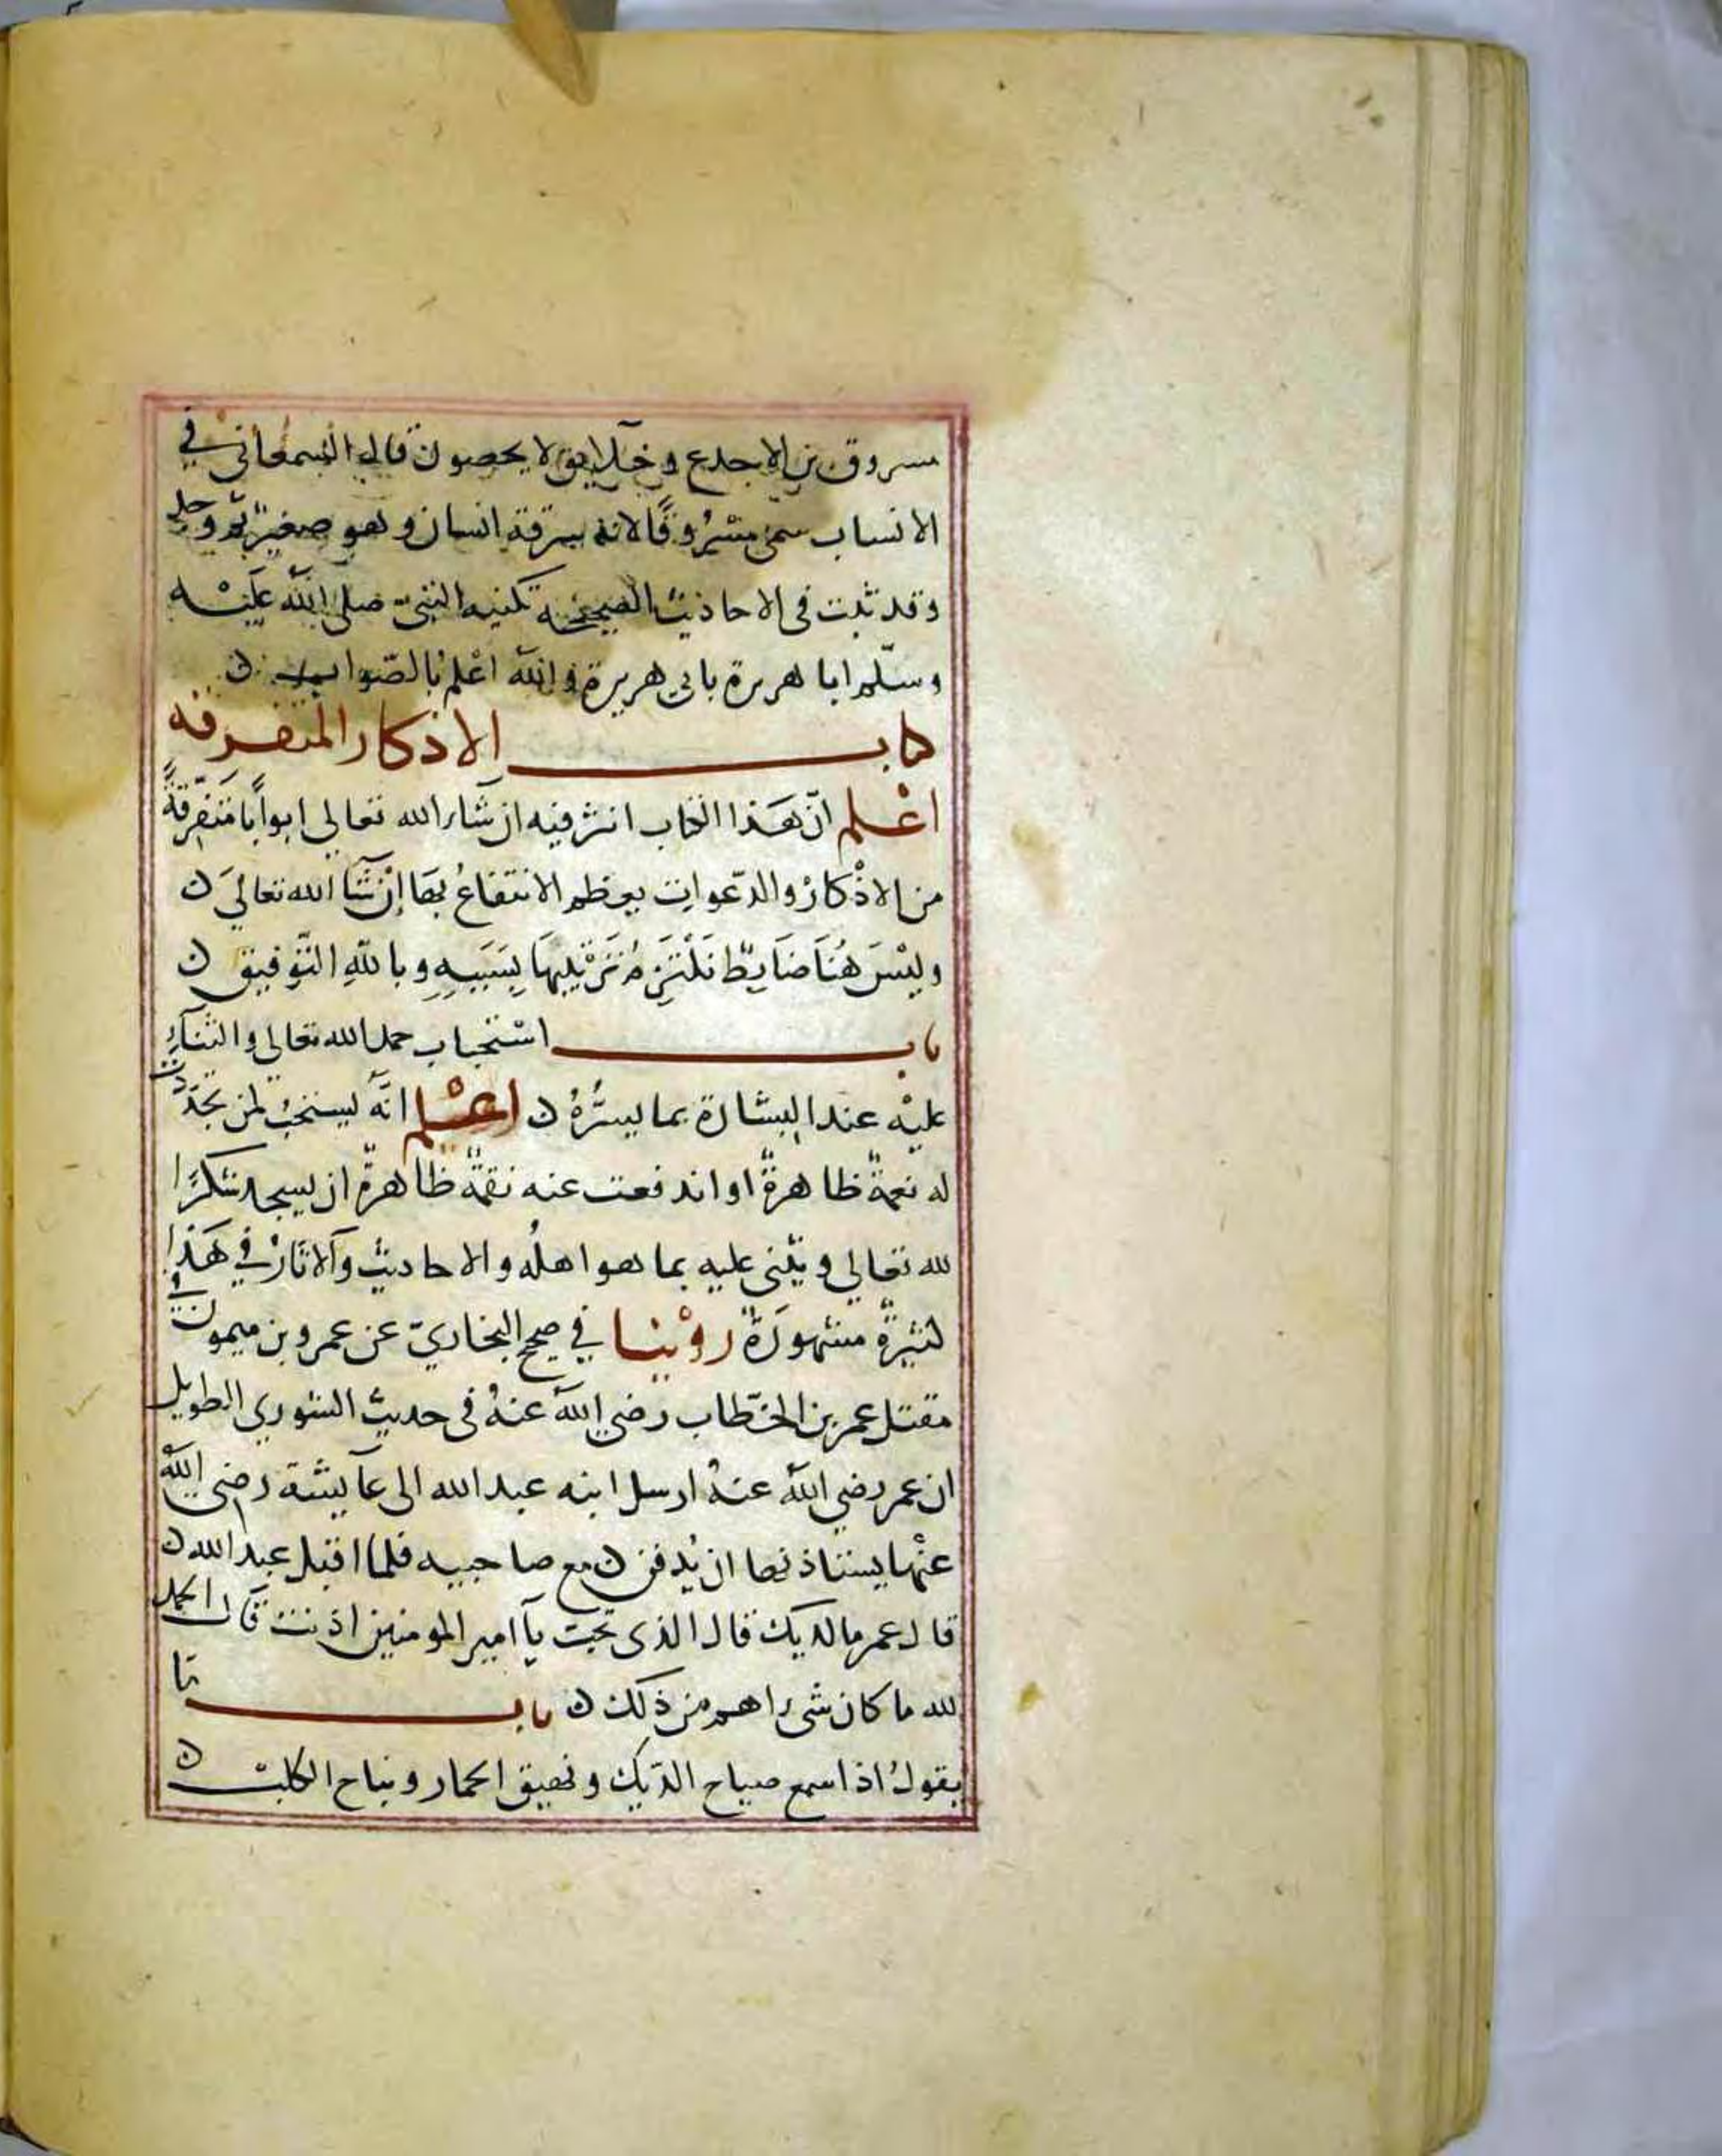 مسروق بن الاجدع وخلايق لا يحصون قال السمعاني في
الانساب سمي مسروقًا لانه سرقة انسان وهو صغير ثم وجد
وقد ثبت في الاحاديث الصحيحة تكنيه النبيّ صلى الله عليْه
وسلّم ابا هريرة بابي هريرة والله اعْلم بالصّواب ن
كتاب الاذكار المتفرقه
اعْلم انّ هَذا الكتاب انثر فيه ان شاء الله تعالى ابوابًا متفرقةً
من الاذْكار والدّعوات يعظم الانتفاعُ بهَا إنْ شَآ الله تعاليَ ن
وليْسَ هُنَا ضَابِطٌ نَلْتَزِمُ تَرْتِيبَهَا بِسَبَبِهِ وباللهِ التّوفيق ن
باب اسْتحباب حمد الله تعالي والثنآءِ
عليْه عند البشارة بما يسُرُّهُ ن اعْلم انّهُ يستحبُ لمن تجدّدت
له نعمةٌ ظاهرةٌ او اندفعت عنه نقمةٌ ظاهرةٌ ان يسجد شكرًا
لله تعالي ويثني عليه بما هو اهلُه والاحاديث والآثارْ في هَذا
كثيرةٌ مشهورَةٌ روْينا في صحيح البخاريّ عن عمرو بن ميمون في
مقتل عمر بن الخطّاب رضي اللهُ عنهُ في حديث الشورى الطويل
ان عمر رضي اللهُ عنهُ ارسل ابنه عبد الله الى عآيشة رضي اللهُ
عنْها يستاذنها ان يُدفن ن مع صاحبيه فلما اقبل عبد الله ن
قال عمر ما لديك قال الذي تحب يآ امير المومنين اذنت قال الحمد
لله ما كان شيء اهم من ذلك ن باب ما
يقولُ اذا سمع صياح الدّيك ونهيق الحمار ونباح الكلبْ ن